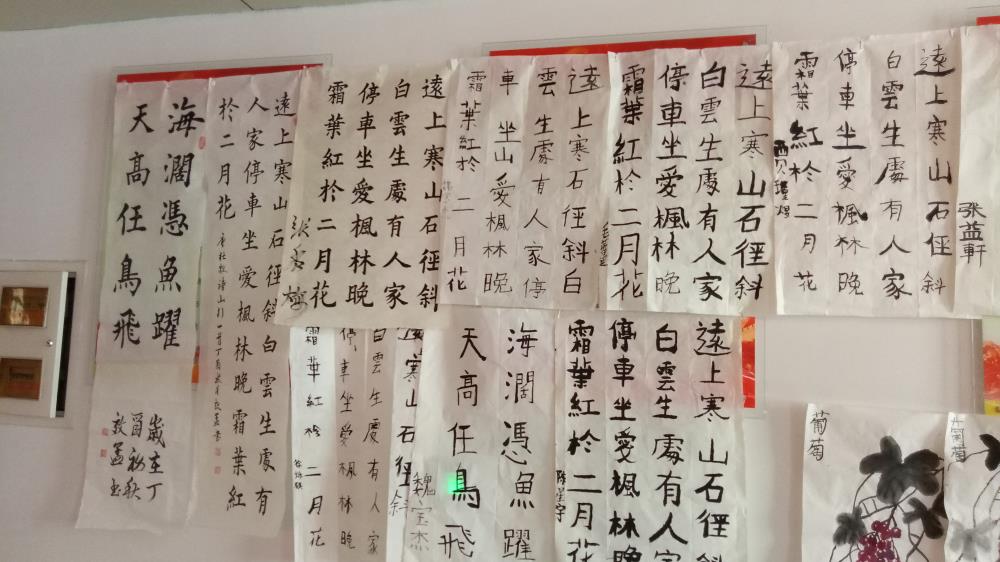 海濶憑魚躍
天高任鳥飛
歲在丁
酉初秋
遠上寒山石徑斜白雲生處有
人家停車坐愛楓林晚霜葉紅
於二月花
遠上寒山石徑斜
白雲生處有人家
停車坐愛楓林晚
霜葉紅於二月花
遠上寒石徑斜白
雲生處有人家停
車坐山愛楓林晚
霜葉紅於二月花
遠上寒山石徑斜
白雲生處有人家
停車坐愛楓林晚
霜葉紅於二月花
张益軒
遠上寒山石徑斜
白雲生處有人家
停車坐愛楓林晚
霜葉紅於二月花
寒山石徑斜
白雲生處有人家
停車坐愛楓林晚
霜葉紅於二月花
海濶憑魚躍
天高任鳥飛
魏宝杰
遠上寒山石徑斜
白雲生處有人家
停車坐愛楓林晚
霜葉紅於二月花
葡萄
葡萄